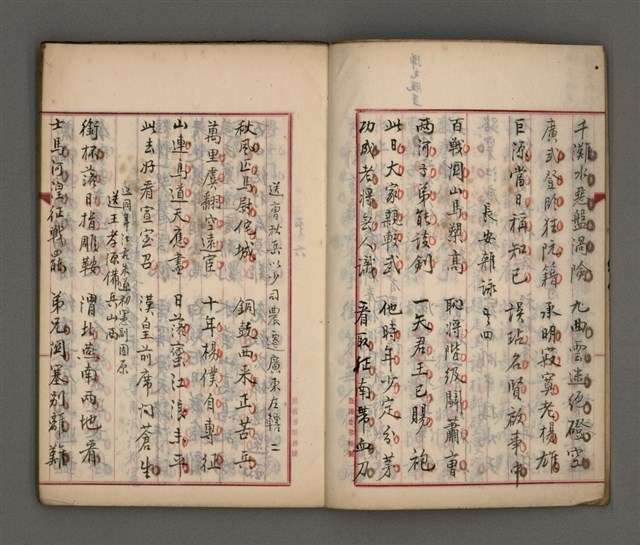 千淵水惡盤渦險 九曲雲迷絕磴空
廣武登臨狂阮籍 承明寂寞老楊雄
巨源當日稱知己 誤玷名賢啟事中
長安雜詠 其四
百戰關山馬槊高 恥將階級鬪蕭曹
兩河子弟能談劍 一矢君王已賜袍
此日大家親較武 他時年少定分茅
功成老將無人識 看取征南第血刀
送曹秋岳以少司農遷廣東左轄 二
秋風匹馬尉佗城 銅鼓西來正苦兵
萬里虞翻空遠宦 十年楊僕自專征
山連鳥道天應盡 日落蠻江浪未平
此去好看宣室召 漢皇前席問蒼生
送王孝源備兵山西
銜杯落日指雕鞍 渭北燕南兩地看
士馬河湟征戰罷 弟兄關塞別離難